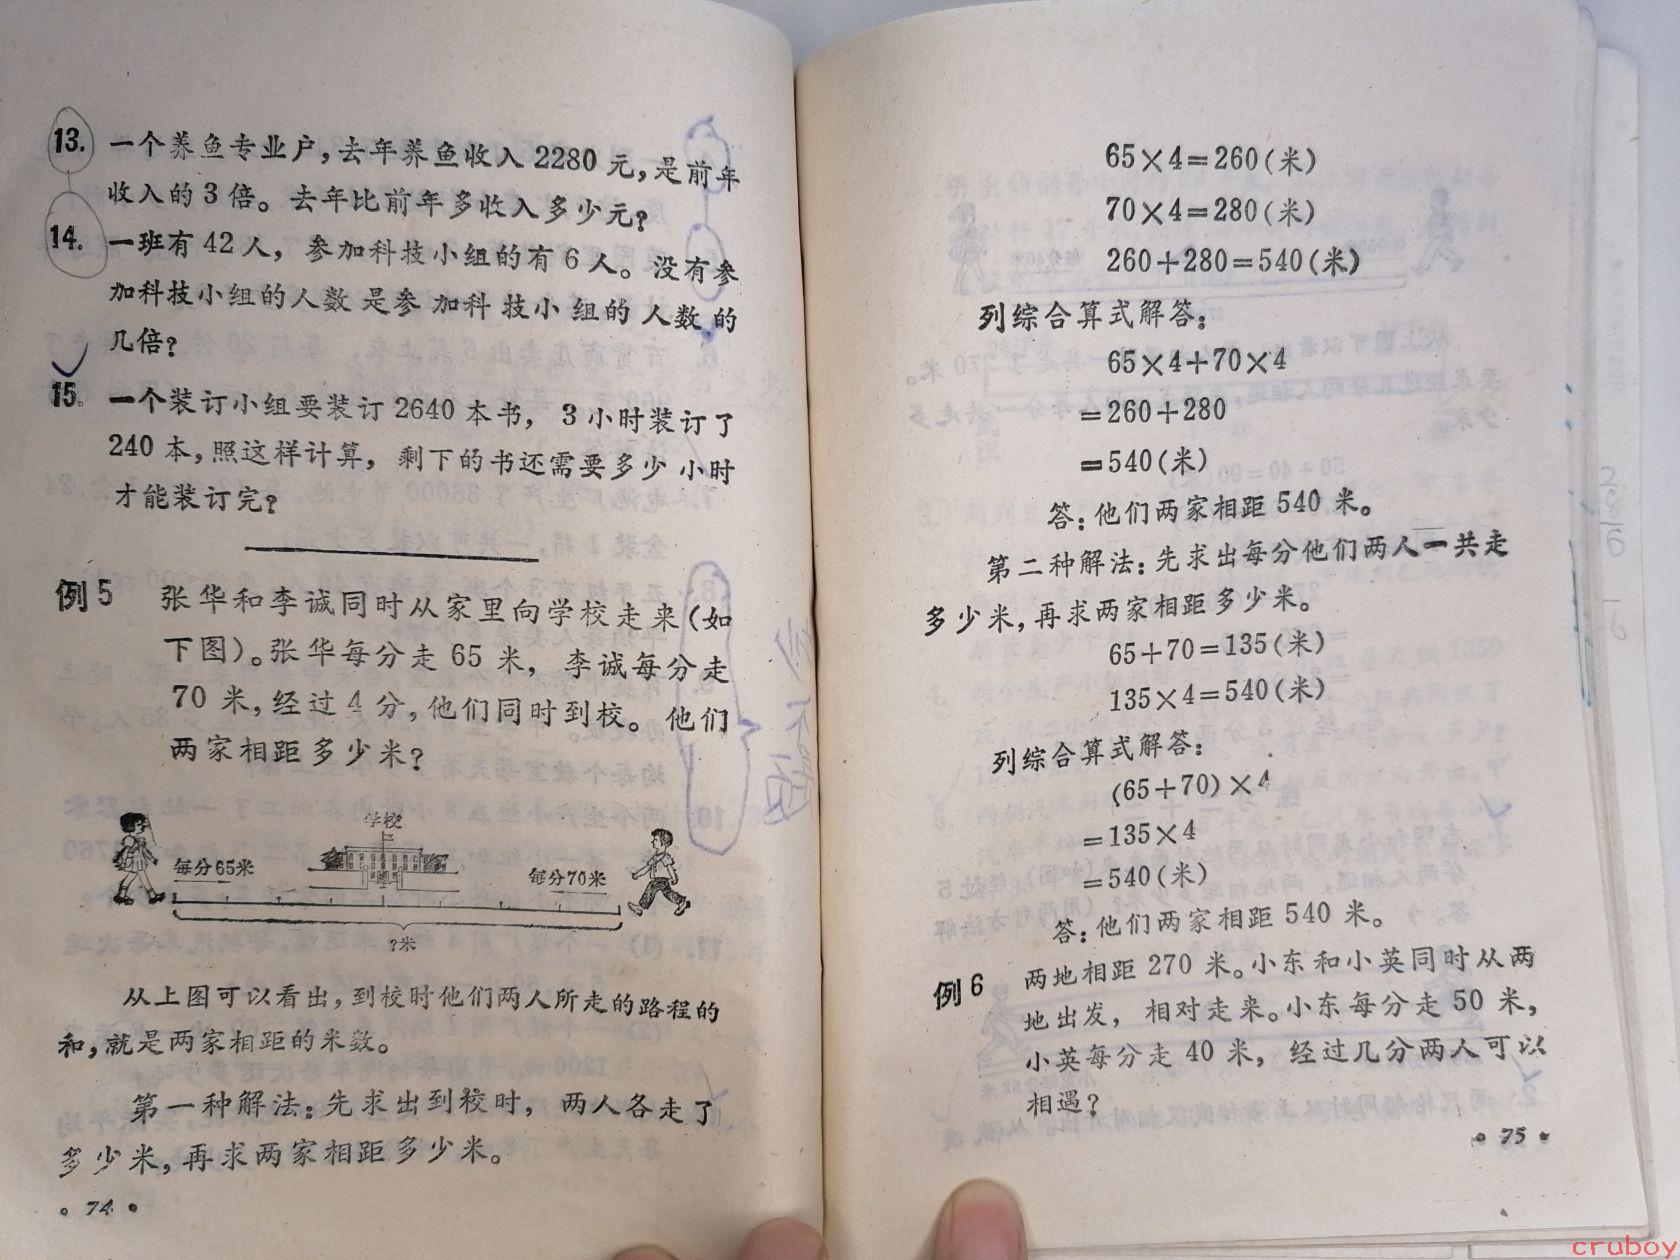 13. 一个养鱼专业户，去年养鱼收入2280元，是前年
收入的3倍。去年比前年多收入多少元？
14. 一班有42人，参加科技小组的有6人。没有参
加科技小组的人数是参加科技小组的人数的
几倍？
15. 一个装订小组要装订2640本书，3小时装订了
240本，照这样计算，剩下的书还需要多少小时
才能装订完？
例5 张华和李诚同时从家里向学校走来（如
下图）。张华每分走65米，李诚每分走
70米，经过4分，他们同时到校。他们
两家相距多少米？
学校
每分65米
每分70米
?米
从上图可以看出，到校时他们两人所走的路程的
和，就是两家相距的米数。
第一种解法：先求出到校时，两人各走了
多少米，再求两家相距多少米。
· 74 ·
65×4=260(米)
70×4=280(米)
260+280=540(米)
列综合算式解答：
65×4+70×4
=260+280
=540(米)
答：他们两家相距540米。
第二种解法：先求出每分他们两人一共走
多少米，再求两家相距多少米。
65+70=135(米)
135×4=540(米)
列综合算式解答：
(65+70)×4
=135×4
=540(米)
答：他们两家相距540米。
例6 两地相距270米。小东和小英同时从两
地出发，相对走来。小东每分走50米，
小英每分走40米，经过几分两人可以
相遇？
· 75 ·
cruboy